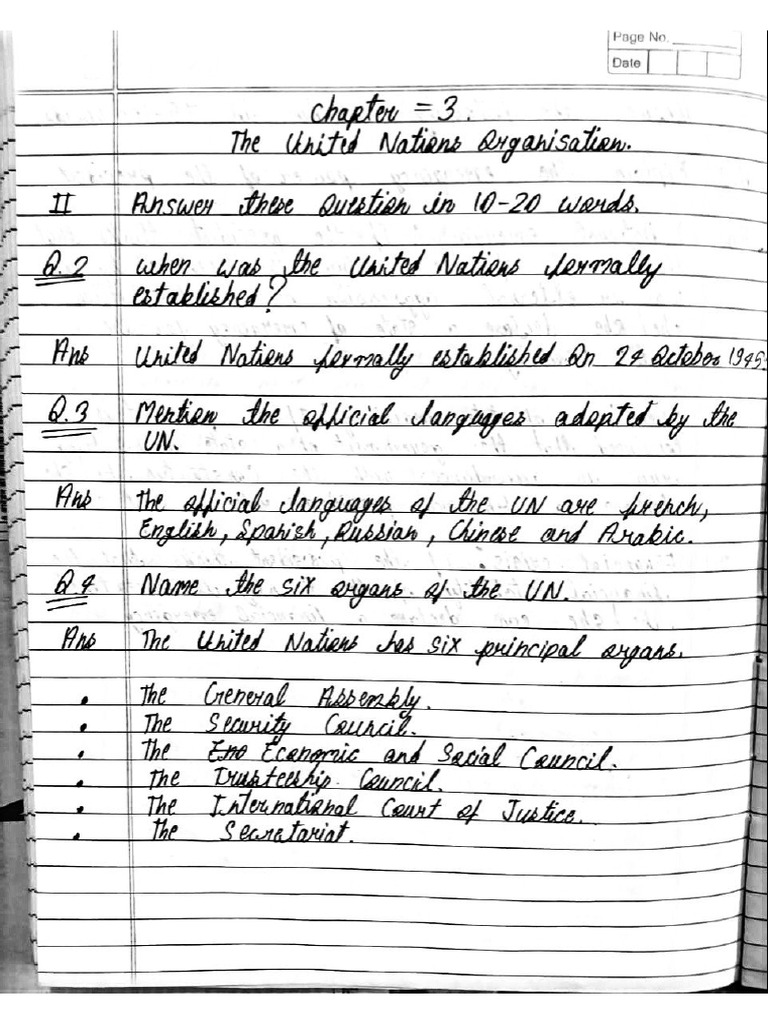 Page No.
Date
Chapter = 3.
The United Nations Organisation.
II Answer these Question in 10-20 words.
Q.2 when was the United Nations formally
established?
Ans United Nations formally established On 24 October 1945.
Q.3 Mention the official languages adopted by the
UN.
Ans The official languages of the UN are french,
English, Spanish, Russian, Chinese and Arabic.
Q.4 Name the six organs of the UN.
Ans The United Nations has six principal organs.
• The General Assembly.
• The Security Council.
• The Eno Economic and Social Council.
• The Trusteeship Council.
• The International Court of Justice.
• The Secretariat.